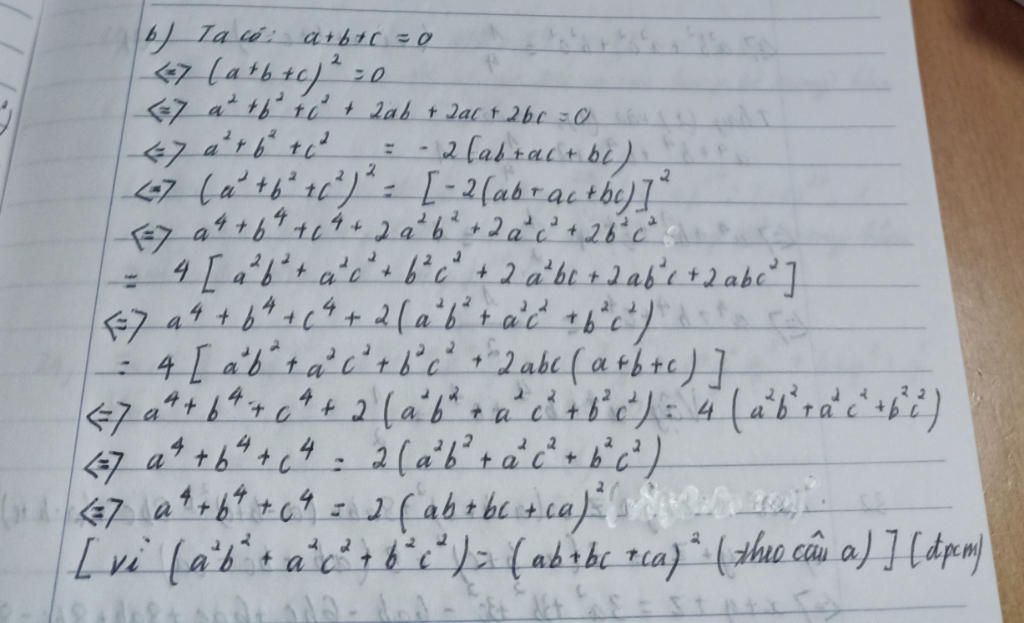 b) Ta có: a+b+c=0
<=> (a+b+c)² =0
<=> a² +b² +c² + 2ab + 2ac + 2bc =0
<=> a² + b² + c² = -2(ab+ac+bc)
<=> (a² +b² +c²)² = [-2(ab+ac+bc)]²
<=> a⁴+b⁴+c⁴+ 2a²b² +2a²c² +2b²c²
= 4 [ a²b² + a²c² + b²c² + 2a²bc + 2ab²c + 2abc² ]
<=> a⁴ + b⁴ + c⁴ + 2(a²b² + a²c² + b²c²)
= 4 [ a²b² + a²c² + b²c² + 2abc (a+b+c) ]
<=> a⁴+b⁴+c⁴ + 2 (a²b² + a²c² + b²c²) = 4 (a²b² + a²c² + b²c²)
<=> a⁴ +b⁴ +c⁴ = 2(a²b² + a²c² + b²c²)
<=> a⁴ +b⁴ +c⁴ = 2(ab+bc+ca)²
[ vì (a²b² + a²c² + b²c²) = (ab+bc+ca)² (theo câu a) ] (đpcm)